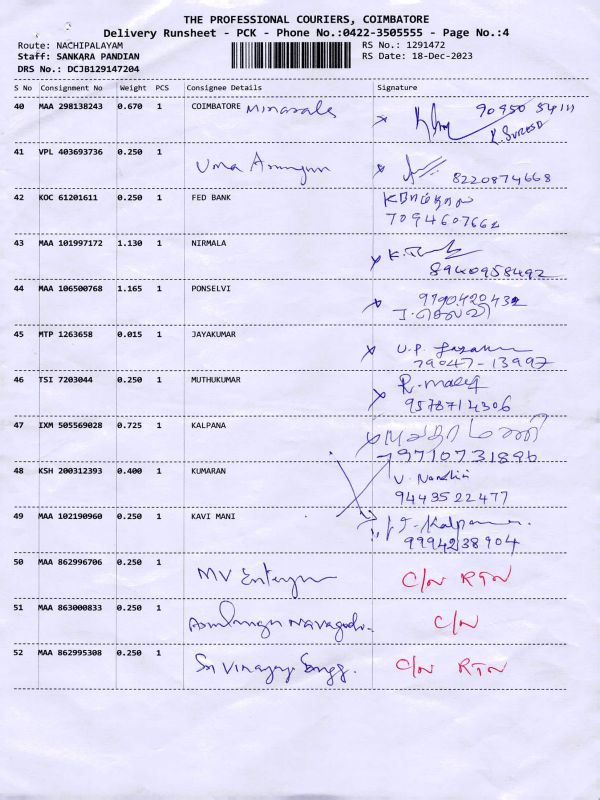 THE PROFESSIONAL COURIERS, COIMBATORE
Delivery Runsheet - PCK - Phone No.:0422-3505555 - Page No.:4
Route: NACHIPALAYAM RS No.: 1291472
Staff: SANKARA PANDIAN RS Date: 18-Dec-2023
DRS No.: DCJB129147204
S No Consignment No Weight PCS Consignee Details Signature
40 MAA 298138243 0.670 1 COIMBATORE
K. SURESH
41 VPL 403693736 0.250 1
Uma
8220874668
42 KOC 61201611 0.250 1 FED BANK
7094607662
43 MAA 101997172 1.130 1 NIRMALA
8940958492
44 MAA 106500768 1.165 1 PONSELVI
9790420432
45 MTP 1263658 0.015 1 JAYAKUMAR
79047-13997
46 TSI 7203044 0.250 1 MUTHUKUMAR
9578714306
47 IXM 505569028 0.725 1 KALPANA
9710731896
48 KSH 200312393 0.400 1 KUMARAN
V. Nandhini
9443522477
49 MAA 102190960 0.250 1 KAVI MANI
J. Kalpana
9994238904
50 MAA 862996706 0.250 1 MV C/N RTN
51 MAA 863000833 0.250 1 C/N
52 MAA 862995308 0.250 1 Sri C/N RTN